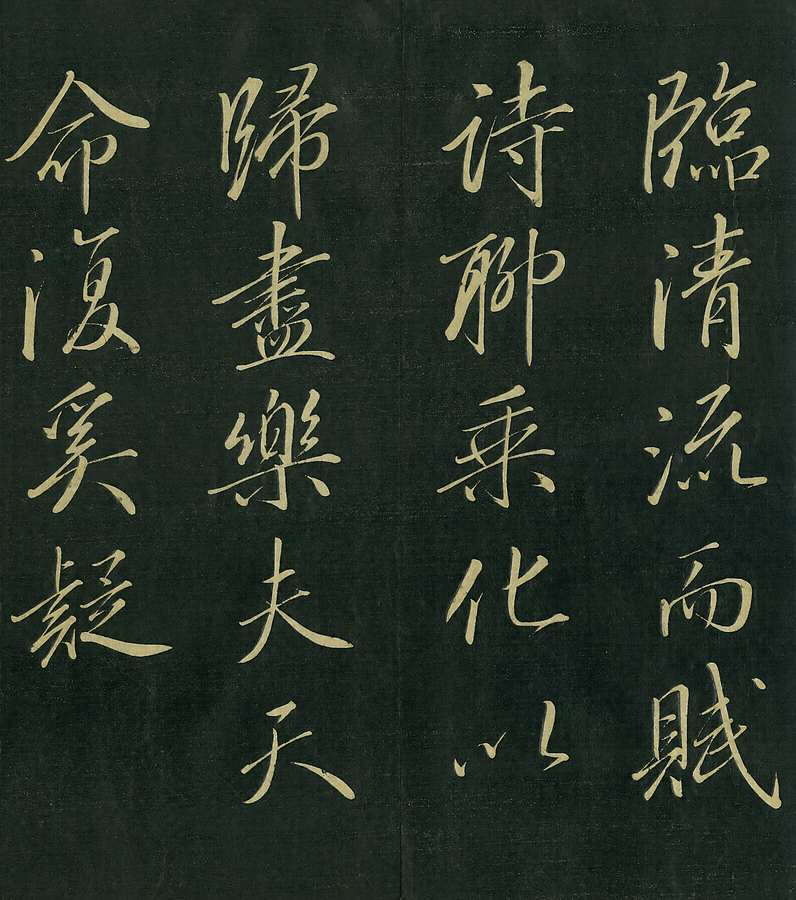 臨清流而賦
詩聊乘化以
歸盡樂夫天
命復奚疑